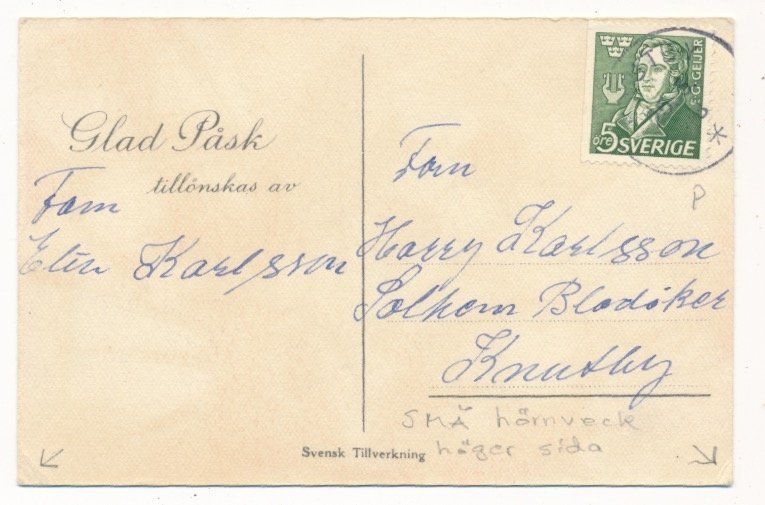 Glad Påsk
tillönskas av
Fam
Elin Karlsson
E·G·GEIJER
5
öre
SVERIGE
P
Fam
Harry Karlsson
Solhem Bladåker
Knutby
SMÅ hörnveck
höger sida
Svensk Tillverkning